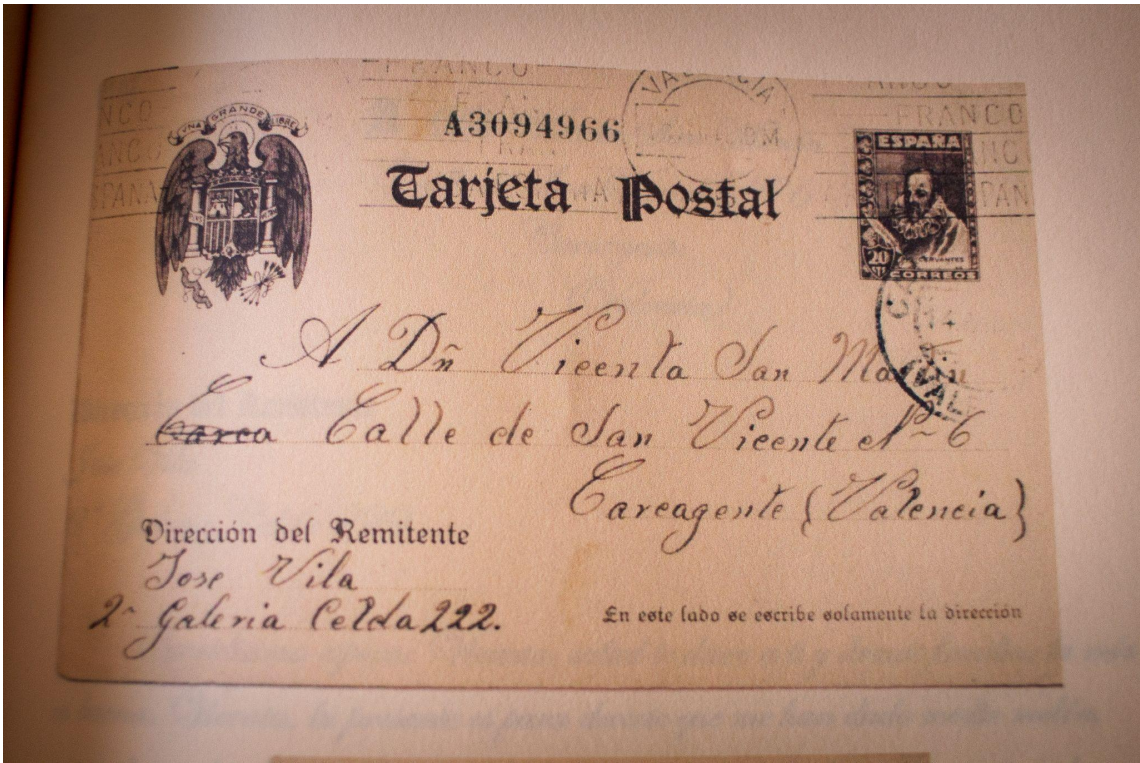 FRANCO
UNA GRANDE LIBRE
A3094966
VALENCIA
FRANCO
ESPAÑA
Tarjeta Postal
20
CERVANTES
CORREOS
A Dñ Vicenta San Martin
Carca Calle de San Vicente Nº 6
Carcagente (Valencia)
14
VAL
Dirección del Remitente
Jose Vila
2ª Galeria Celda 222.
En este lado se escribe solamente la dirección